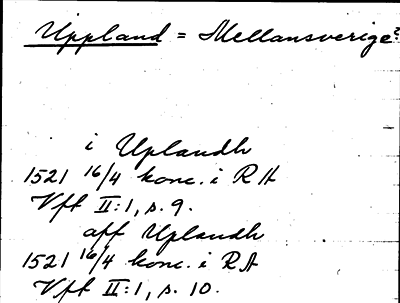 Uppland = Mellansverige?
i Uplandh
1521 16/4 konc. i RA
Vft II:1, s. 9.
aff Uplandh
1521 16/4 konc. i RA
Vft II:1, s. 10.